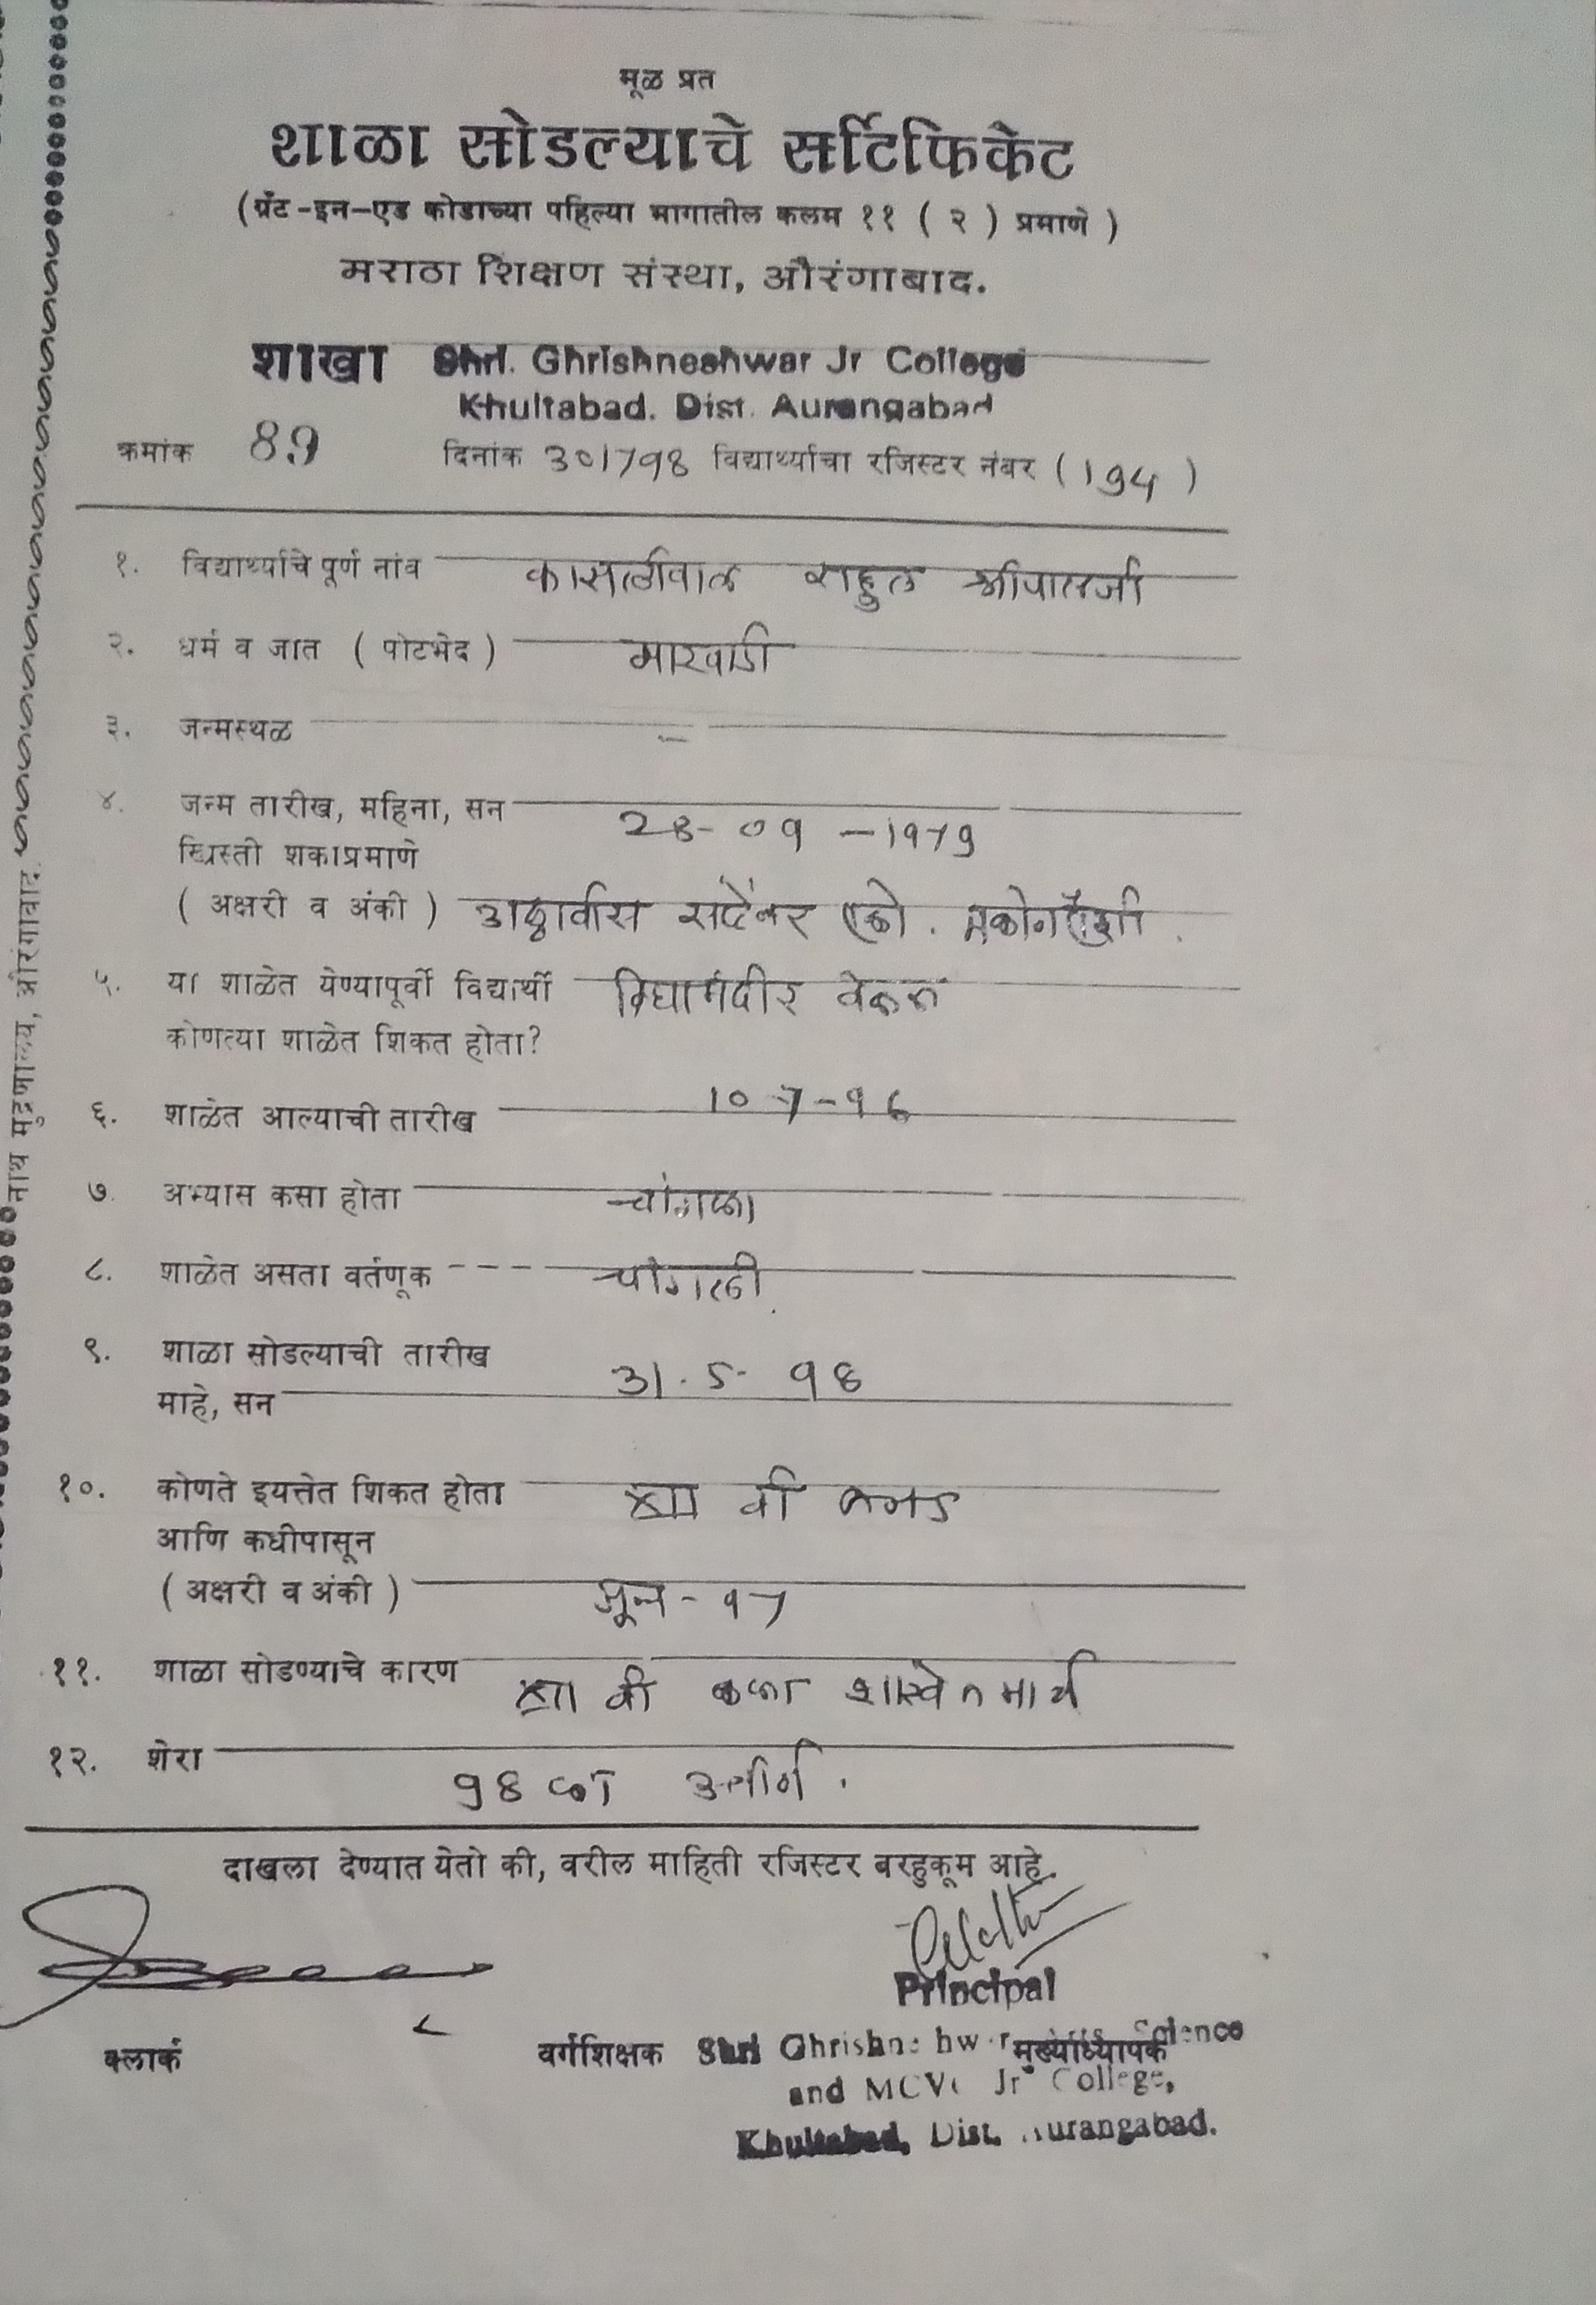 मूळ प्रत
शाळा सोडल्याचे सर्टिफिकेट
(ग्रँट-इन-एड कोडाच्या पहिल्या भागातील कलम ११ ( २ ) प्रमाणे )
मराठा शिक्षण संस्था, औरंगाबाद.
शाखा Shri. Ghrishneshwar Jr College
Khultabad. Dist. Aurangabad
क्रमांक दिनांक 30/7/98 विद्यार्थ्याचा रजिस्टर नंबर ( 194 )
१. विद्यार्थ्याचे पूर्ण नांव कासलीवाल राहुल श्रीपालजी
२. धर्म व जात ( पोटभेद ) मारवाडी
३. जन्मस्थळ –
४. जन्म तारीख, महिना, सन 28-09-1979
ख्रिस्ती शकाप्रमाणे
( अक्षरी व अंकी ) अठ्ठावीस सप्टेंबर एको.
५. या शाळेत येण्यापूर्वी विद्यार्थी विद्यामंदीर वेरुळ
कोणत्या शाळेत शिकत होता?
६. शाळेत आल्याची तारीख 10-7-96
७. अभ्यास कसा होता चांगला
८. शाळेत असता वर्तणूक --- चांगली
९. शाळा सोडल्याची तारीख 31.5-98
माहे, सन
१०. कोणते इयत्तेत शिकत होता XII वी
आणि कधीपासून
( अक्षरी व अंकी ) जून-97
११. शाळा सोडण्याचे कारण XII वी कला
१२. शेरा उत्तीर्ण.
दाखला देण्यात येतो की, वरील माहिती रजिस्टर बरहुकूम आहे.
Principal
क्लार्क वर्गशिक्षक मुख्याध्यापक
Shri Ghrishneshwar Science
and MCVC Jr College,
Khultabad, Dist. Aurangabad.
नाथ मुद्रणालय, औरंगाबाद.